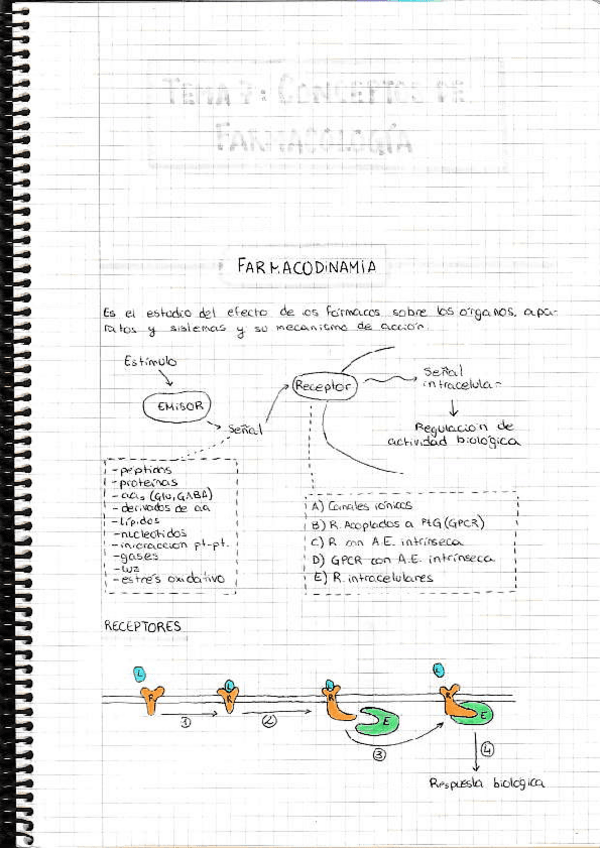 TEMA 7: CONCEPTOS DE
FARMACOLOGÍA
FARMACODINAMIA
Es el estudio del efecto de os fármacos sobre los organos, apa-
ratos y sistemas y su mecanismo de acción.
Estímulo
EMISOR
Señal
Receptor
Señal
intracelula
Regulacion de
actividad biológica
- peptidos
- proteinas
- aas (Glu, GABA)
- derivados de aa
- Lípidos
- nucleotidos
- interaccion pt-pt.
- gases
- luz
- estrés oxidativo
A) Canales iónicos
B) R. Acoplados a PtG (GPCR)
C) R con A.E. intrínseca
D) GPCR con A.E. intrínseca
E) R. intracelulares
RECEPTORES
L L L L
R R R R
E E
① ② ③ ④
Respuesta biológica